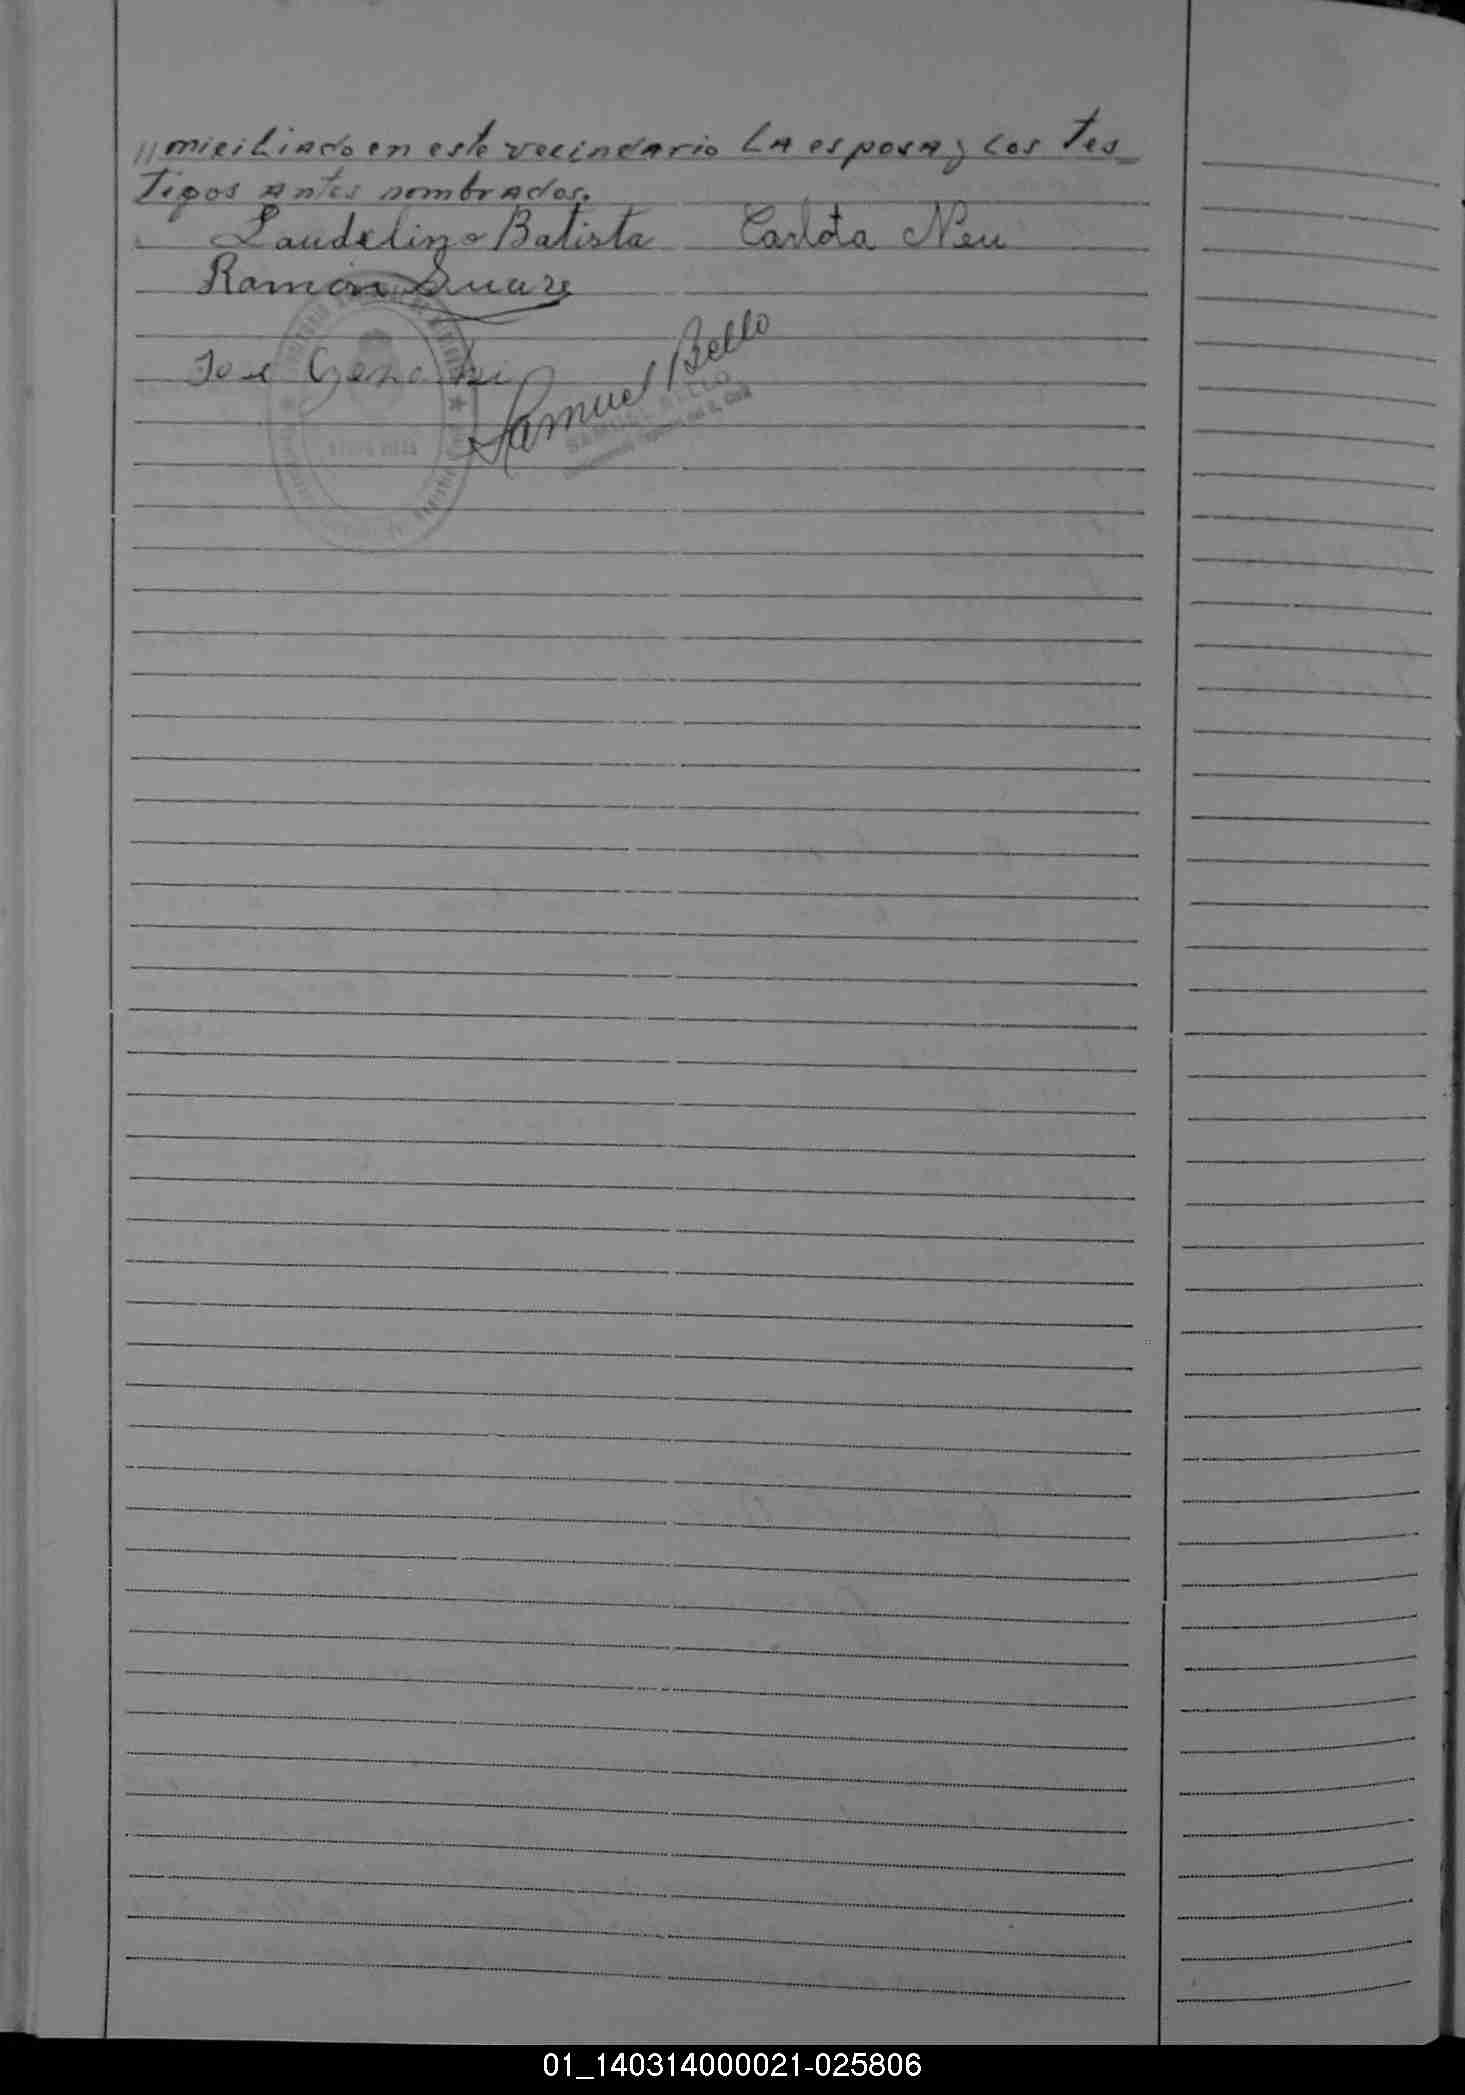 "miciliado en este vecindario la esposa y los tes_
tigos antes nombrados.
Laudelino Batista Carlota Neu
Ramón Suarez
José
Samuel Bello
SAMUEL BELLO
01_140314000021-025806